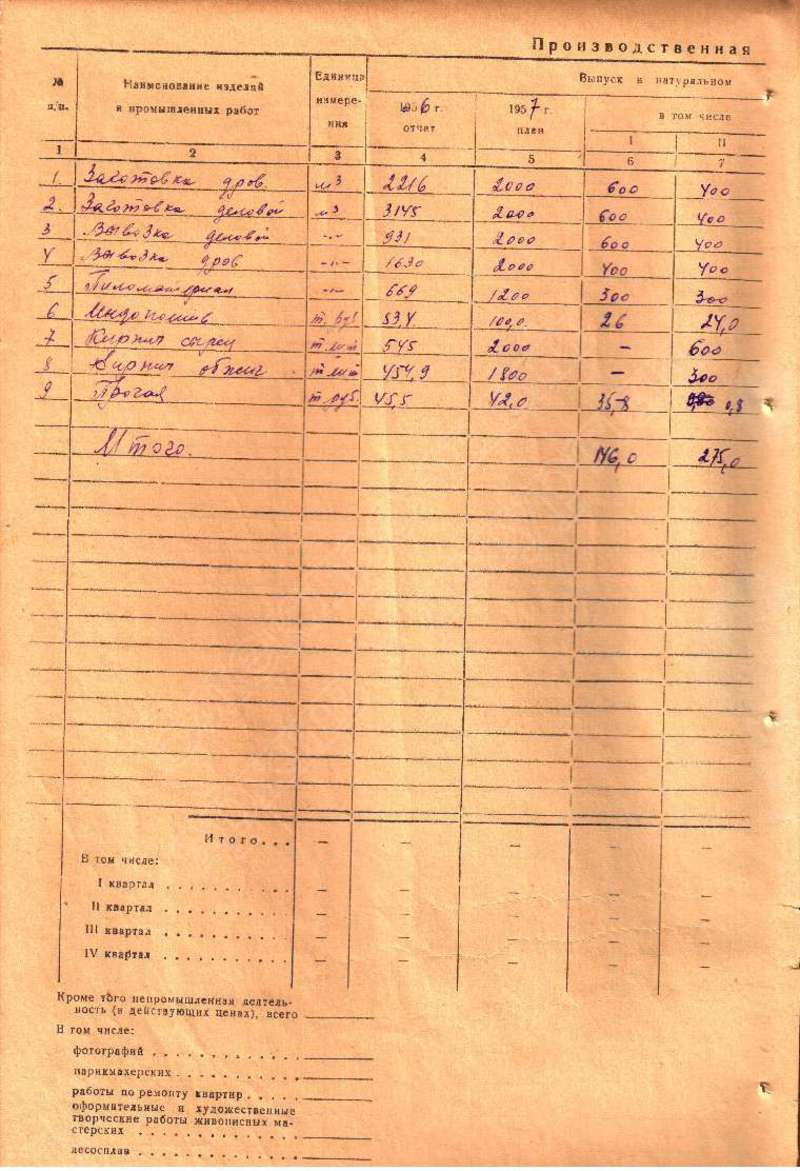 Производственная
№ п/п. Наименование изделий и промышленных работ Единица измерения Выпуск в натуральном
1956 г. отчет 1957 г. план в том числе
I II
1 2 3 4 5 6 7
1. Заготовка дров м³ 2216 2000 600 400
2. Заготовка деловой м³ 3145 2000 600 400
3 Вывозка деловой -"- 931 2000 600 400
4 Вывозка дров -"- 1630 2000 400 400
5 Пиломатериал -"- 669 1200 300 300
6 Индпошив т. руб. 83,4 100,0 26 24,0
7 Кирпич сырец т. шт 545 2000 – 600
8 Кирпич обжиг т. шт 454,9 1800 – 300
9 Прочая т. руб. 45,5 42,0 35,8 0,8
Итого. 146,0 275,0
Итого... — — — — —
В том числе:
I квартал . . . . . . . . . . . — — — — —
II квартал . . . . . . . . . . . — — — — —
III квартал . . . . . . . . . . . — — — — —
IV квартал . . . . . . . . . . . — — — — —
Кроме того непромышленная деятель-
ность (в действующих ценах), всего
В том числе:
фотографий . . . . . . . . . . . .
парикмахерских . . . . . . . . . .
работы по ремонту квартир . . . . .
оформительные и художественные
творческие работы живописных ма-
стерских . . . . . . . . . . . . .
лесосплав . . . . . . . . . . . . .